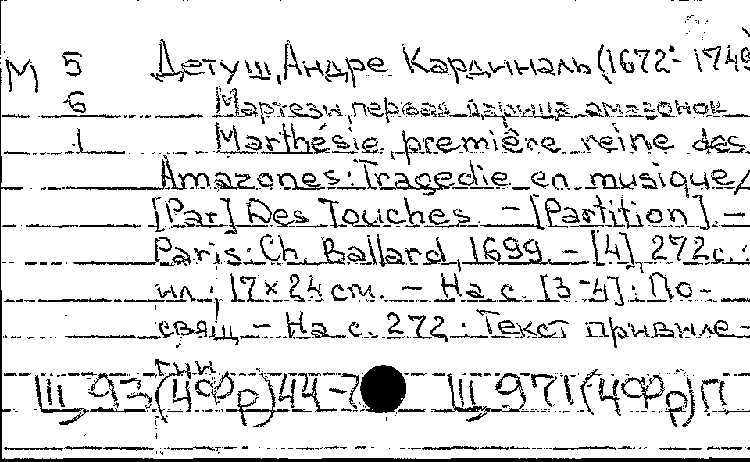 М 5 Детуш, Андре Кардиналь (1672-1749
6 Мартези, первая царица амазонок
1 Marthésie, première reine des
Amazones: Tragedie en musique/
[Par] Des Touches. – [Partition]. –
Paris: Ch. Ballard, 1699. – [4], 272с.:
ил.; 17×24 см. – На с. [3-4]: По-
свящ. – На с. 272: Текст привиле-
гии
Щ 93(4Фр)44-7 Щ 971(4Фр)П